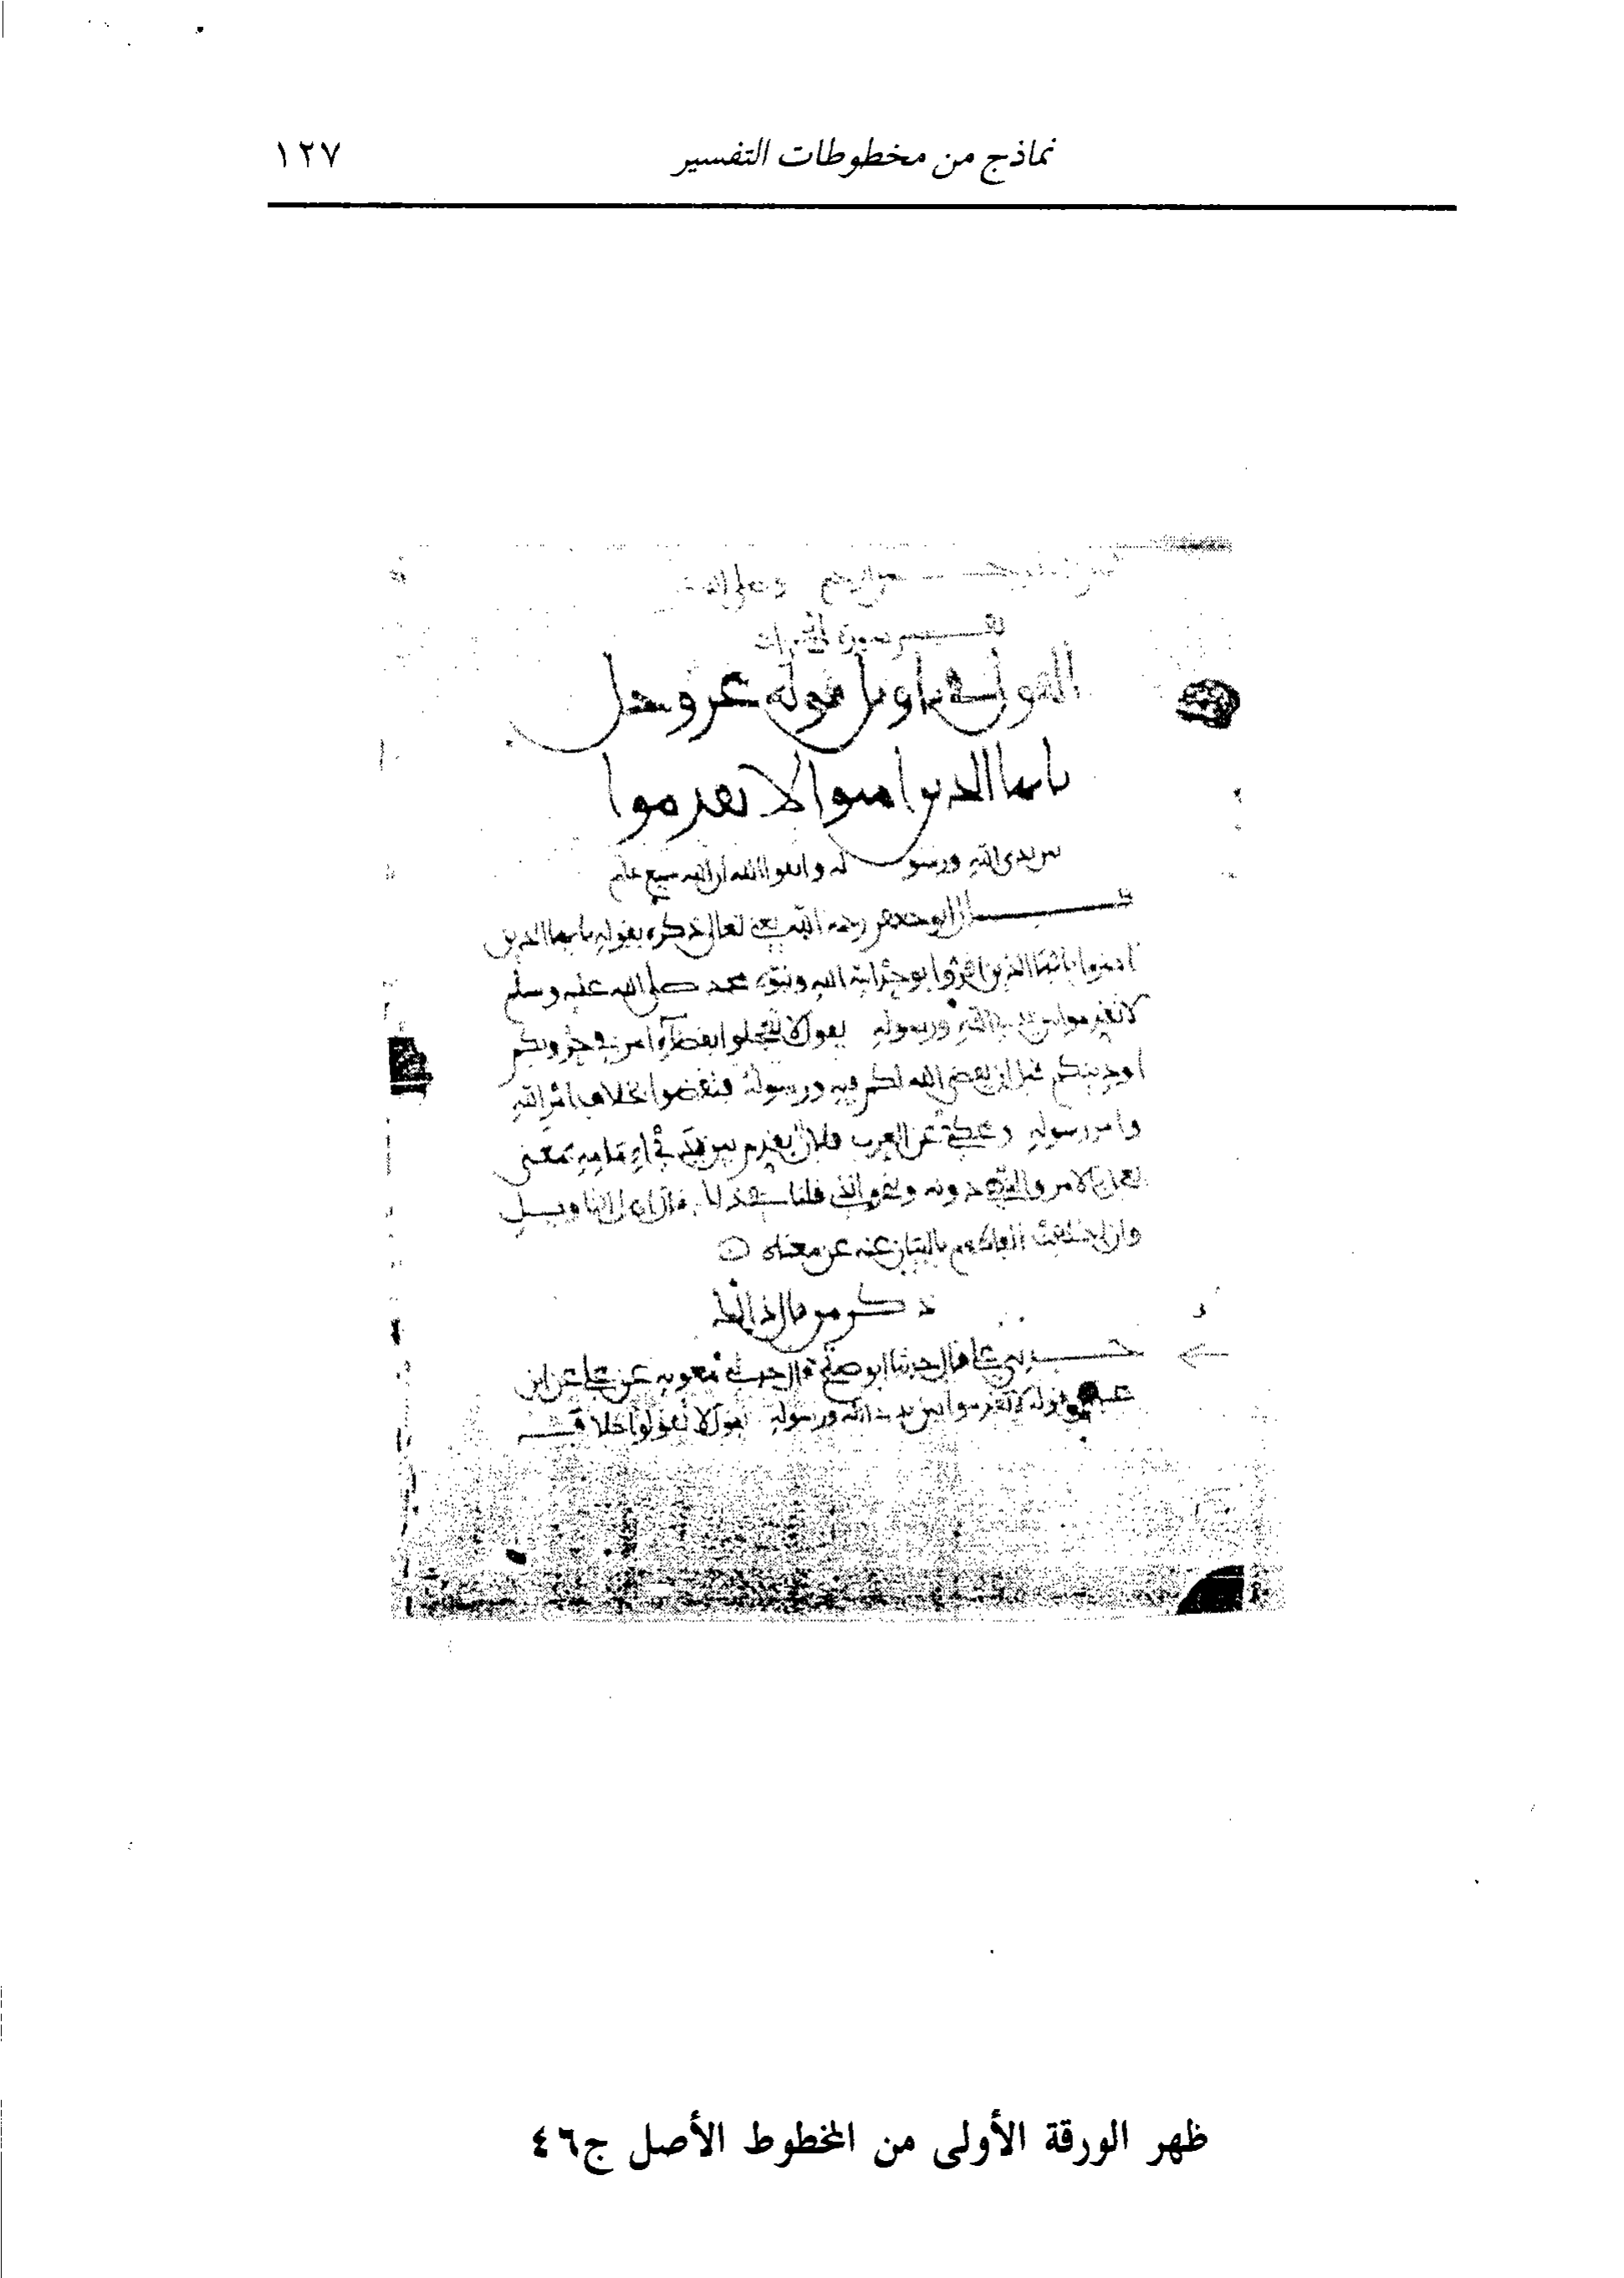 نماذج من مخطوطات التفسير ١٢٧
تفسير سورة الحجرات
القول في تاويل قوله عز وجل
يايها الدين امنوا لا تقدموا
بين يدى الله ورسوله واتقوا الله ان الله سميع عليم
قال ابو جعفر رحمه الله يعني تعالى ذكره بقوله يايها الدين
امنوا يا ايها الذين اقروا بوحدانية الله ونبوة محمد صلى الله عليه وسلم
لا تقدموا بين يدي الله ورسوله يقول لا تعجلوا بقضاء امر في حروبكم
او دينكم قبل ان يقضى الله لكم فيه ورسوله فتقضوا بخلاف امر الله
وامر رسوله ومحكي عن العرب فلان يقدم بين يدي امامه بمعنى
يعجل بالامر والنهي دونه وبنحو الذي قلنا في ذلك قال اهل التاويل
وان اختلفت الفاظهم بالبيان عنه عن معناه
ذكر من قال ذلك
حدثني على قال حدثنا ابو صلح قال حدثني معويه عن على عن ابن
عباس قوله لا تقدموا بين يدي الله ورسوله يقول لا تقولوا خلاف
ظهر الورقة الأولى من المخطوط الأصل ج٤٦